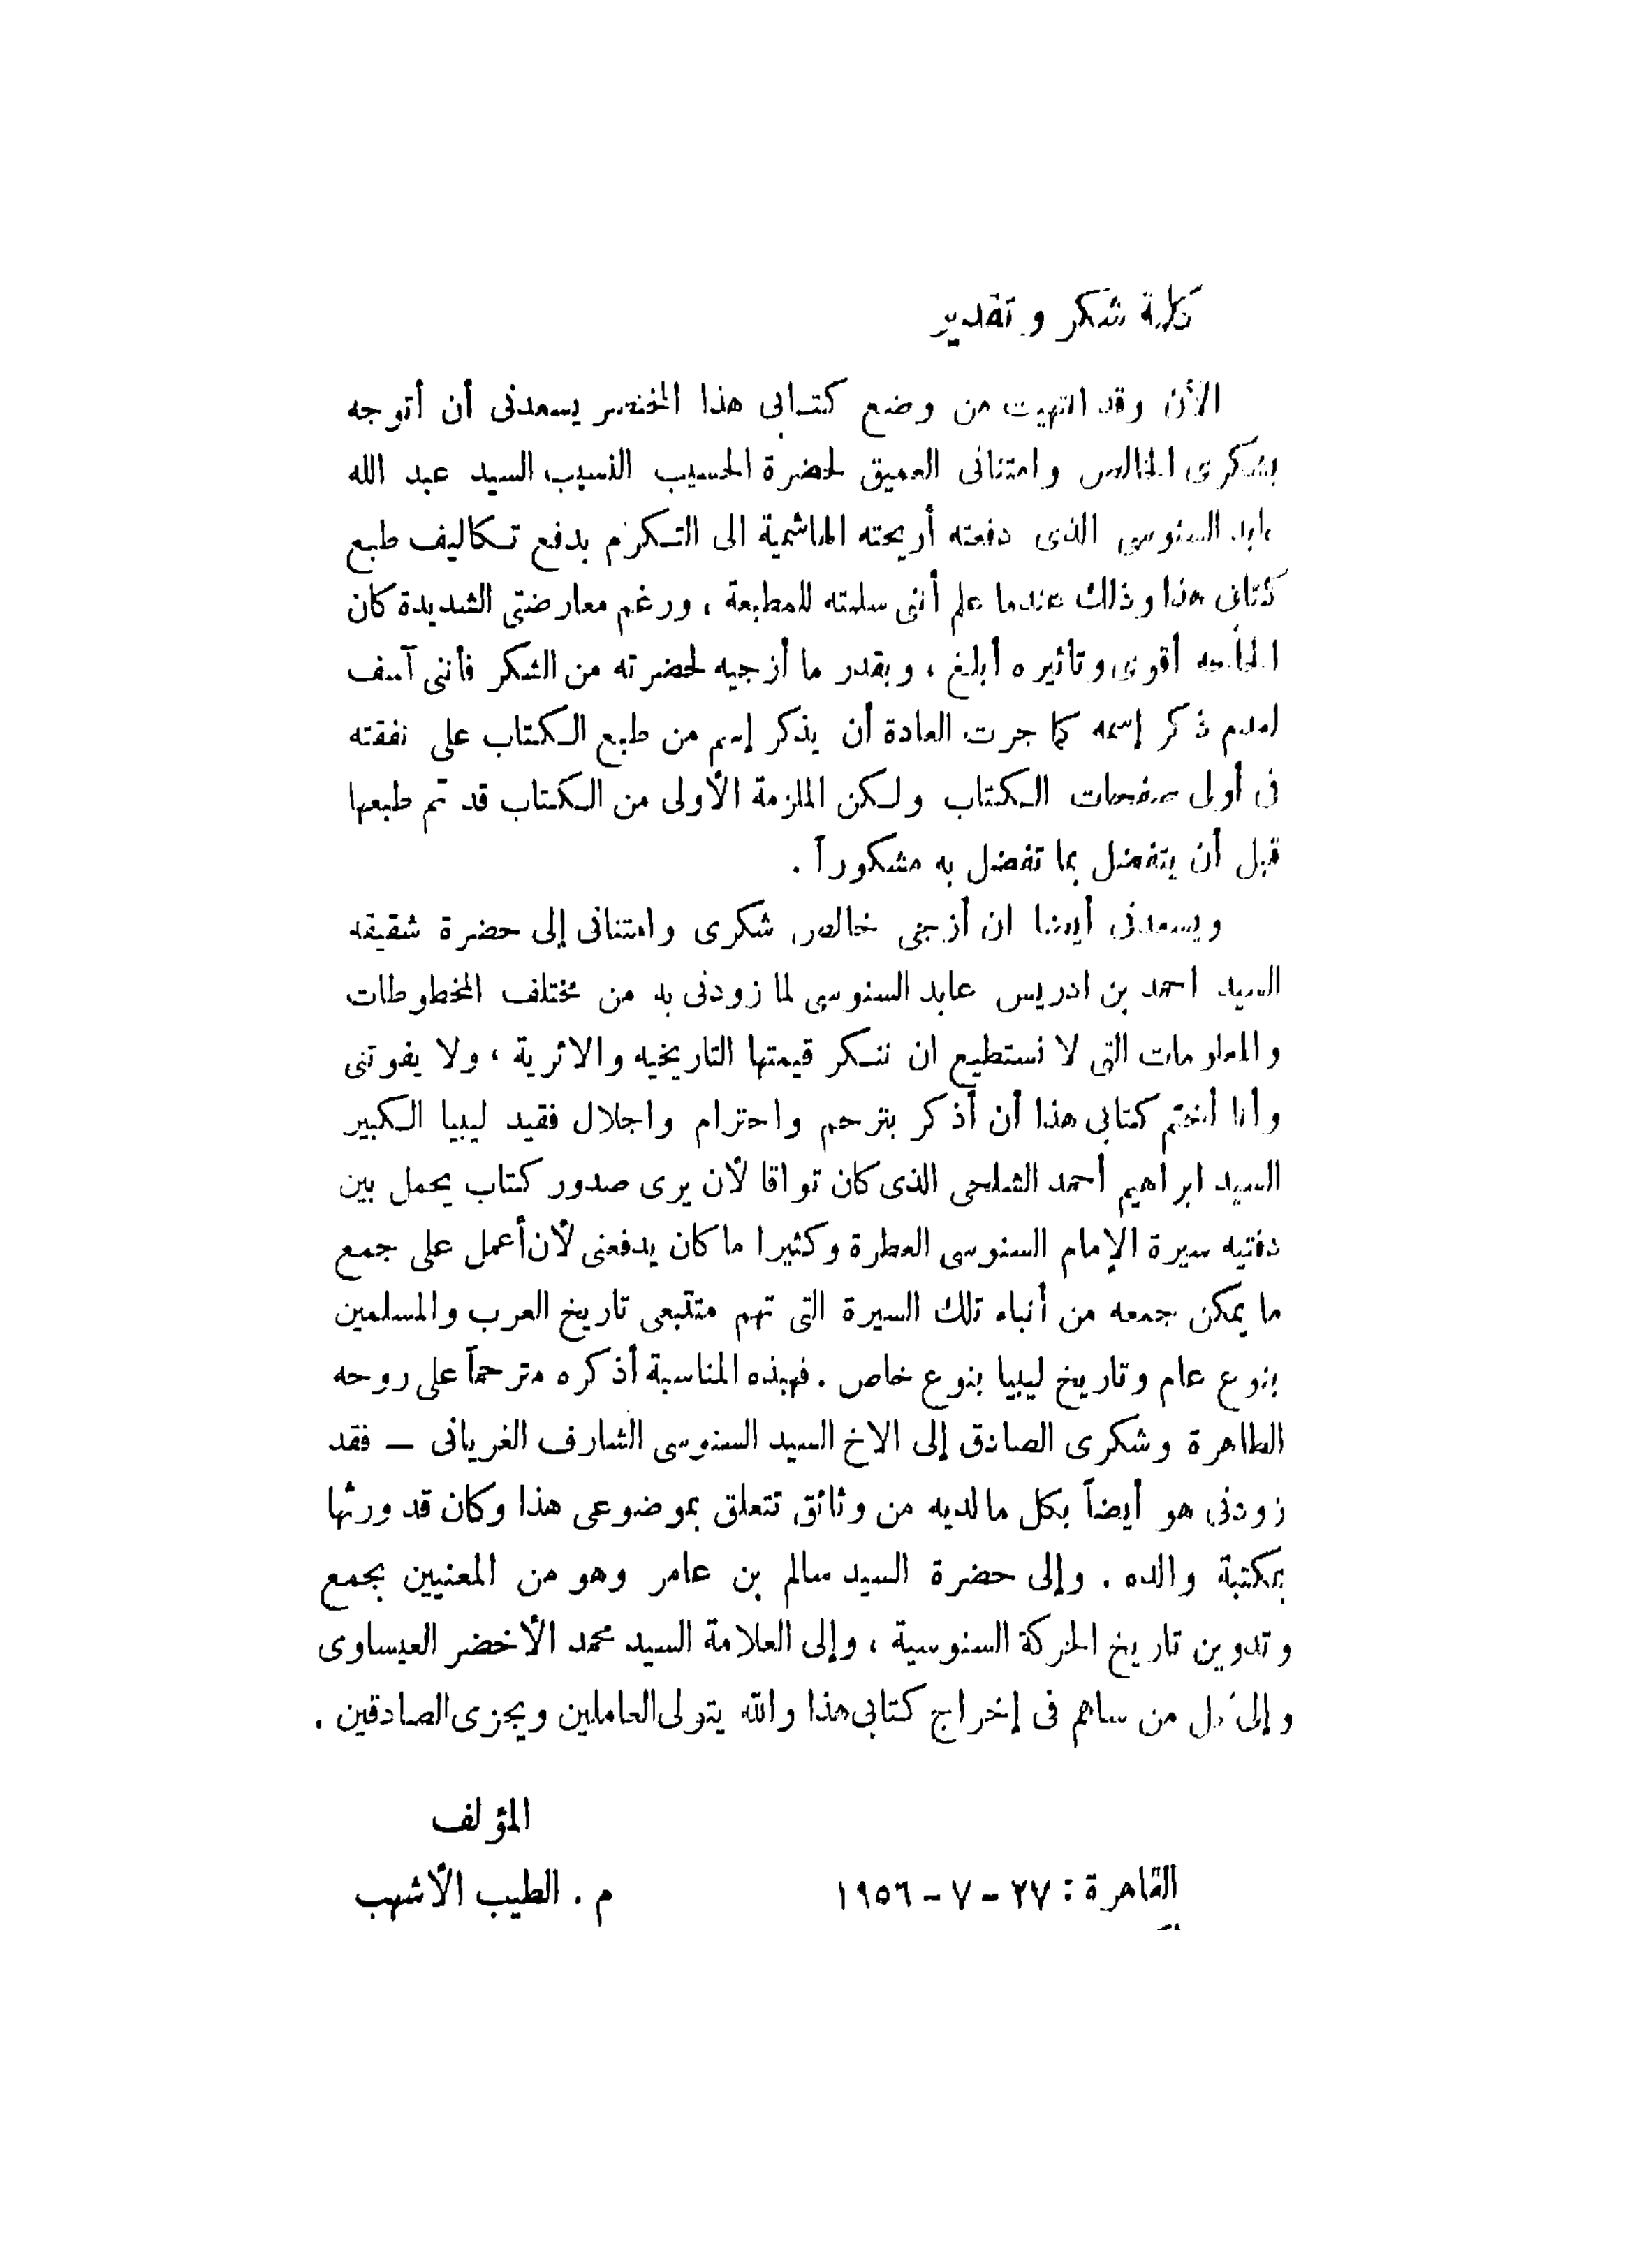 كلمة شكر وتقدير
الأن وقد انتهيت من وضع كتابى هذا المختصر يسعدنى أن أتوجه
بشكرى الخالص وامتنانى العميق لحضرة الحسيب النسيب السيد عبد الله
عابد السنوسى الذى دفعته أريحته الهاشمية الى التكرم بدفع تكاليف طبع
كتابى هذا وذلك عندما علم أننى سلمته للمطبعة ، ورغم معارضتى الشديدة كان
إلحاحه أقوى وتأثيره أبلغ ، وبقدر ما أزجيه لحضرته من الشكر فأننى آسف
لعدم ذكر إسمه كما جرت العادة أن يذكر إسم من طبع الكتاب على نفقته
فى أولى صفحات الكتاب ولكن الملزمة الأولى من الكتاب قد تم طبعها
قبل أن يتفضل بما تفضل به مشكوراً .
ويسعدنى أيضا ان أزجى خالص شكرى وامتنانى إلى حضرة شقيقه
السيد احمد بن ادريس عابد السنوسى لما زودنى به من مختلف المخطوطات
والمعلومات التى لا نستطيع ان ننكر قيمتها التاريخيه والاثرية ، ولا يفوتنى
وأنا أختم كتابى هذا أن أذكر بترحم واحترام واجلال فقيد ليبيا الكبير
السيد ابراهيم أحمد الشلحى الذى كان تواقا لأن يرى صدور كتاب يحمل بين
دفتيه سيرة الإمام السنوسى العطرة وكثيرا ما كان يدفعنى لأن أعمل على جمع
ما يمكن جمعه من أنباء تلك السيرة التى تهم متتبعى تاريخ العرب والمسلمين
بنوع عام وتاريخ ليبيا بنوع خاص . فبهذه المناسبة أذكره مترحماً على روحه
الطاهرة وشكرى الصادق إلى الاخ السيد السنوسى الشارف الغريانى — فقد
زودنى هو أيضاً بكل مالديه من وثائق تتعلق بموضوعى هذا وكان قد ورثها
بمكتبة والده . وإلى حضرة السيد سالم بن عامر وهو من المعنيين بجمع
وتدوين تاريخ الحركة السنوسية ، وإلى العلامة السيد محمد الأخضر العيساوى
وإلى كل من ساهم فى إخراج كتابى هذا والله يتولى العاملين ويجزى الصادقين .
المؤلف
القاهرة : ٢٧ - ٧ - ١٩٥٦ م . الطيب الأشهب